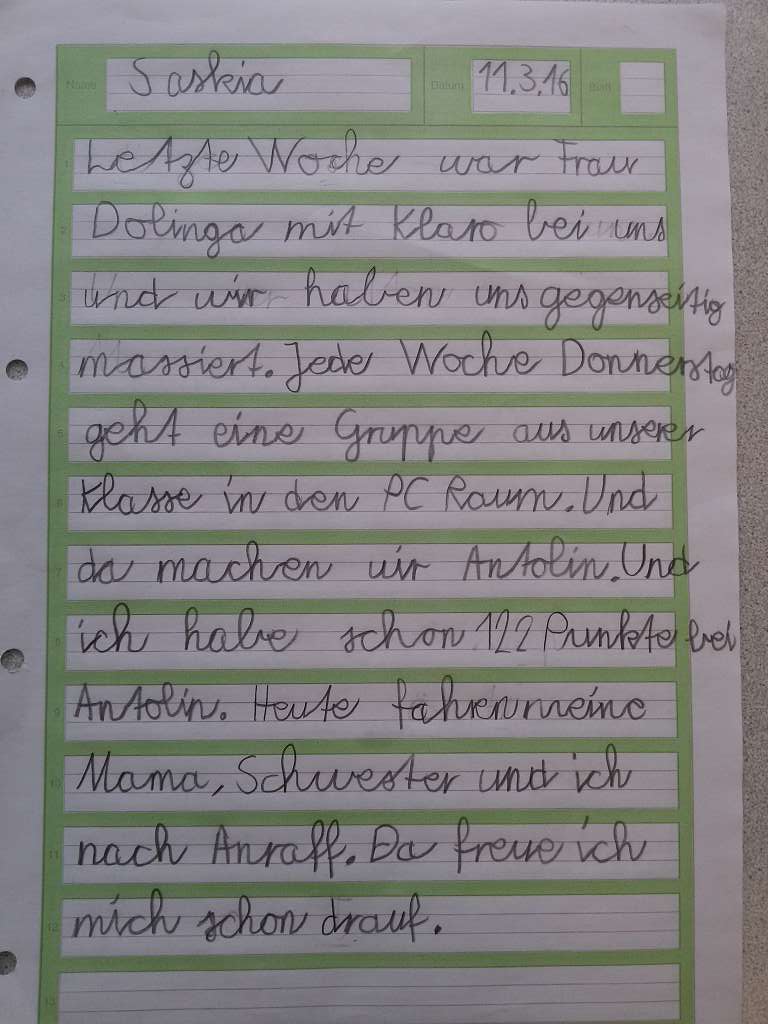 Name Saskia Datum 11.3.16 Blatt
1 Letzte Woche war Frau
2 Dolinga mit Klaro bei uns
3 und wir haben uns gegenseitig
4 massiert. Jede Woche Donnerstag
5 geht eine Gruppe aus unserer
6 Klasse in den PC Raum. Und
7 da machen wir Antolin. Und
8 ich habe schon 122 Punkte bei
9 Antolin. Heute fahren meine
10 Mama, Schwester und ich
11 nach Anraff. Da freue ich
12 mich schon drauf.
13